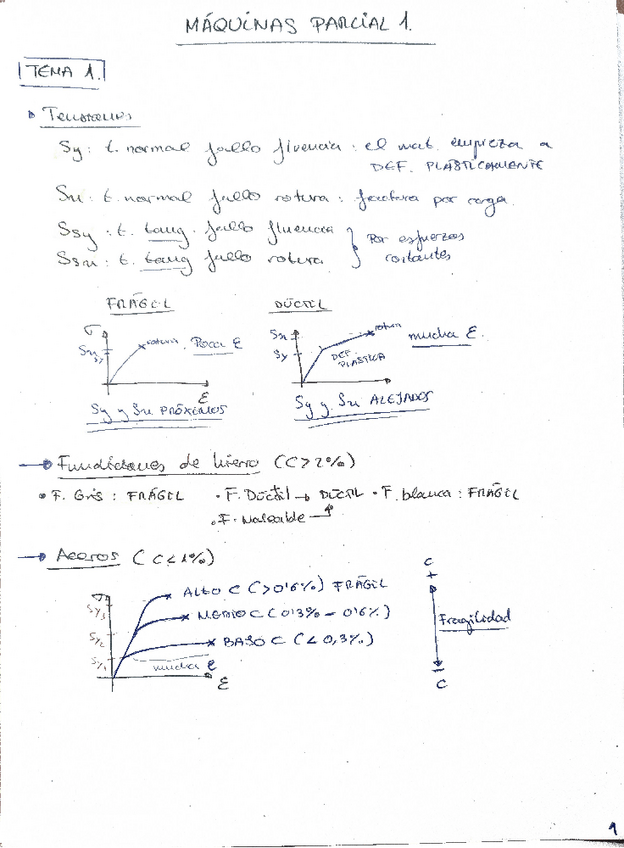 MÁQUINAS PARCIAL 1.
TEMA 1.
Tensiones
Sy: t. normal fallo fluencia: el mat. empieza a
DEF. PLÁSTICAMENTE
Su: t. normal fallo rotura: fractura por carga.
Ssy: t. tang. fallo fluencia
Ssu: t. tang fallo rotura
Por esfuerzos
cortantes
FRÁGIL
σ
Su
Sy
rotura. Poca ε
ε
Sy y Su PRÓXIMOS
DÚCTIL
Su
Sy
rotura
mucha ε.
DEF.
PLÁSTICA
Sy y Su ALEJADOS
→ Fundiciones de hierro (C>2%)
• F. Gris: FRÁGIL • F. Dúctil → DÚCTIL • F. blanca: FRÁGIL
• F. Maleable
→ Aceros (C≤1%)
σ
Sy3
Sy2
Sy1
ALTO C (>0'6%) FRÁGIL
MEDIO C (0'3% - 0'6%)
BAJO C (<0,3%)
mucha ε
ε
C
+
Fragilidad
-
C
1